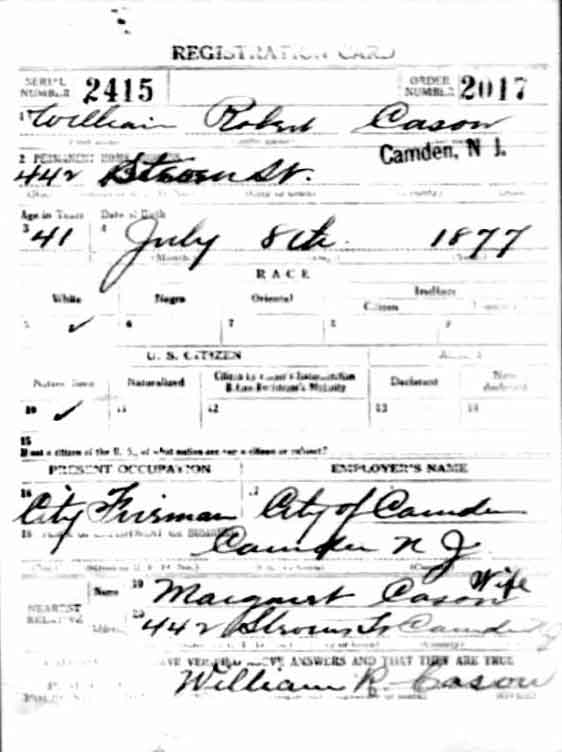 REGISTRATION CARD
SERIAL NUMBER 2415 ORDER NUMBER 2017
1 William Robert Cason
2 PERMANENT HOME Camden, N J.
442 St.
Age in Years Date of Birth
3 41 4 July 8th. 1877
(Month.) (Day.) (Year.)
RACE
White Negro Oriental Indian
Citizen
5 ✓ 6 7 8 9
U. S. CITIZEN
Native Born Naturalized Citizen by Father's Naturalization Before Registrant's Majority Declarant Non-declarant
10 ✓ 11 12 13 14
15
If not a citizen of the U. S., of what nation are you a citizen or subject?
PRESENT OCCUPATION EMPLOYER'S NAME
16 City Firman 17 City of Camden
18 PLACE OF EMPLOYMENT OR BUSINESS
Camden N J
NEAREST RELATIVE Name 19 Margaret Cason Wife
Address 20 442 St Camden NJ
I AFFIRM THAT I HAVE VERIFIED ABOVE ANSWERS AND THAT THEY ARE TRUE
William R. Cason